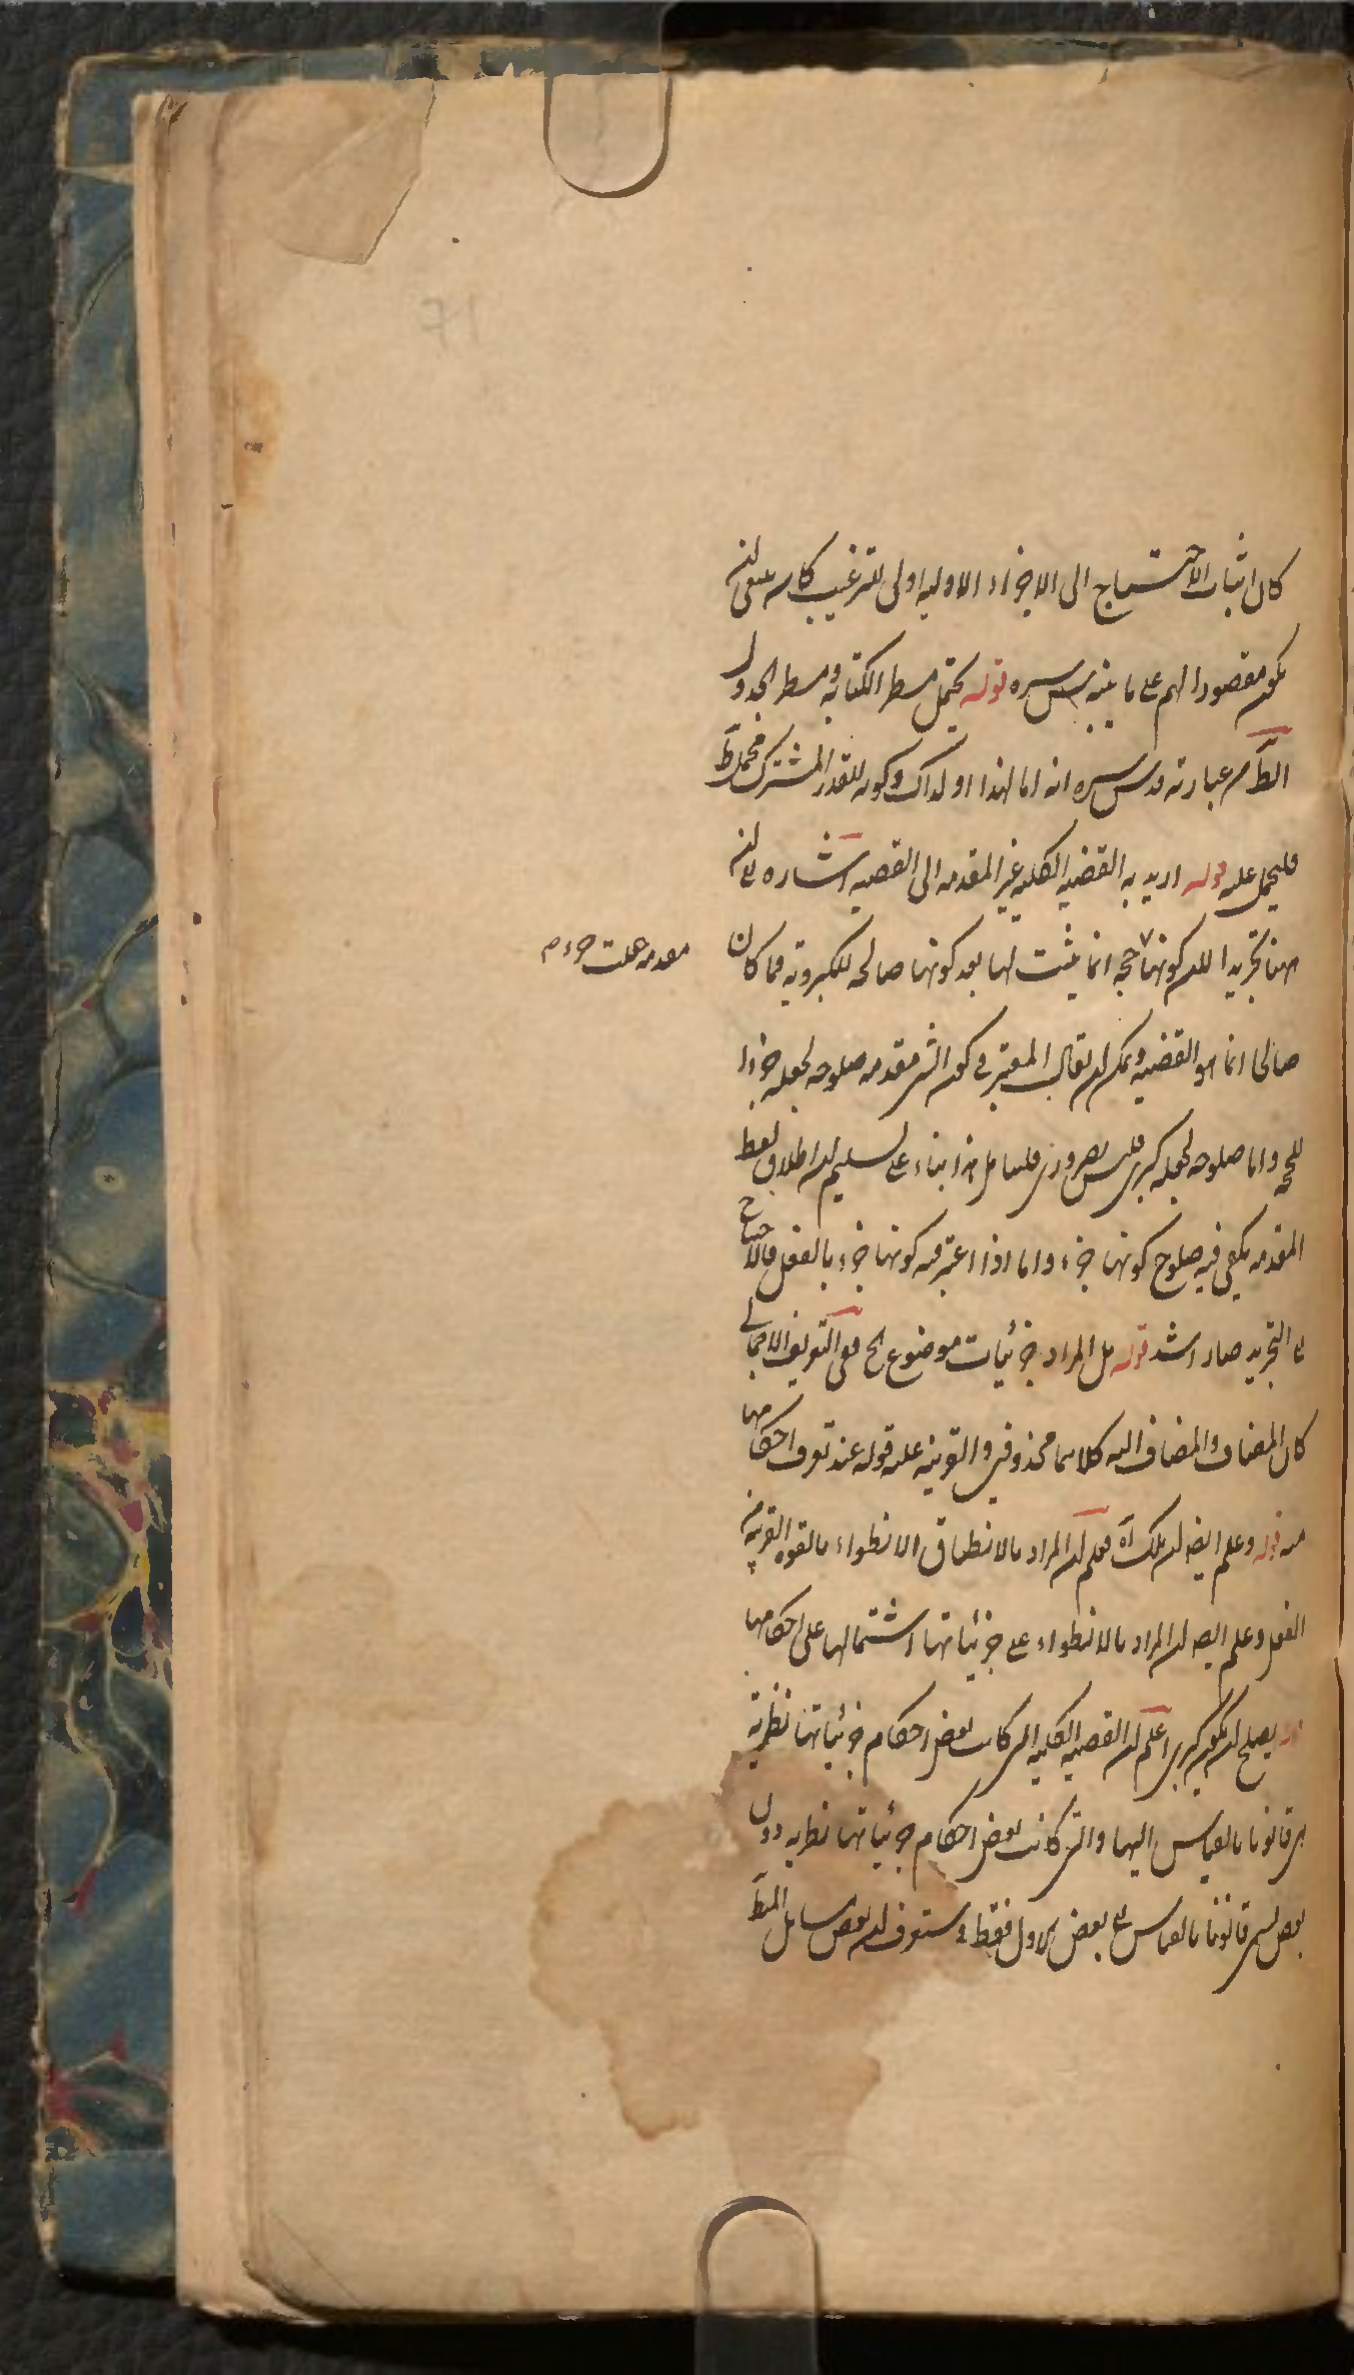 كان اثبات الاحتياج الى الاجزاء الاولية اولى للترغيب كما سيجئ ان
يكون مقصودا لهم على ما بينه قدس سره قوله يحتمل مسطر الكتابة ومسطر الجدول
الظ من عبارته قدس سره انه اما لهذا او لذاك وكونه للقدر المشترك محتمل
فليحمل عليه قوله اريد به القضية الكلية غير المقدمة الى القضية اشارة الى ان
ههنا تجريدا لان كونها حجة انما يثبت لها بعد كونها صالحة للكبروية فما كان
مقدمة جعلت جزء م
صالحا انما هو القضية ويمكن ان يقال المعتبر في كون الشئ مقدمة صلوحه لجعله جزءا
للحجة واما صلوحه لجعله كبرى فليس بضروري فليتأمل هذا بناء على تسليم ان اطلاق لفظ
المقدمة يكفي فيه صلوح كونها جزء واما اذا اعتبر فيه كونها جزء بالفعل فالاحتياج
الى التجريد صار اشد قوله بل المراد جزئيات موضوع الخ ففي التعريف الاجمالي
كان المضاف والمضاف اليه كلاهما محذوفين والقرينة عليه قوله عند تعرف احكامها
منه قوله وعلم ايضا ان تلك آه فعلم ان المراد بالانطباق الانطواء بالقوة القريبة من
الفعل وعلم ايضا ان المراد بالانطواء على جزئياتها اشتمالها على احكامها
قوله يصلح ان يكون كبرى اعلم ان القضية الكلية التي كانت بعض احكام جزئياتها نظرية
هي قانونا بالقياس اليها والتي كانت بعض احكام جزئياتها نظرية دون
بعض ليس قانونا بالقياس الى بعض الاول فقط وستعرف ان بعض مسائل المنط